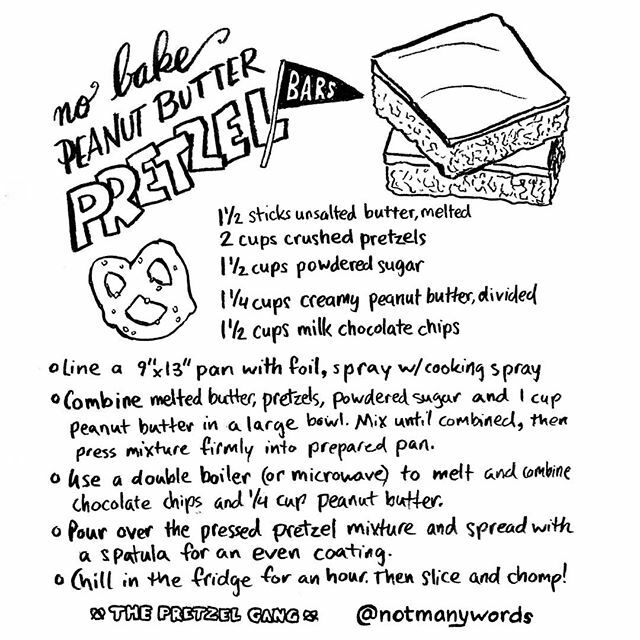 no bake
PEANUT BUTTER
PRETZEL
BARS
1 1/2 sticks unsalted butter, melted
2 cups crushed pretzels
1 1/2 cups powdered sugar
1 1/4 cups creamy peanut butter, divided
1 1/2 cups milk chocolate chips
o Line a 9"x13" pan with foil, spray w/cooking spray
o Combine melted butter, pretzels, powdered sugar and 1 cup
peanut butter in a large bowl. Mix until combined, then
press mixture firmly into prepared pan.
o Use a double boiler (or microwave) to melt and combine
chocolate chips and 1/4 cup peanut butter.
o Pour over the pressed pretzel mixture and spread with
a spatula for an even coating.
o Chill in the fridge for an hour. Then slice and chomp!
THE PRETZEL GANG
@notmanywords